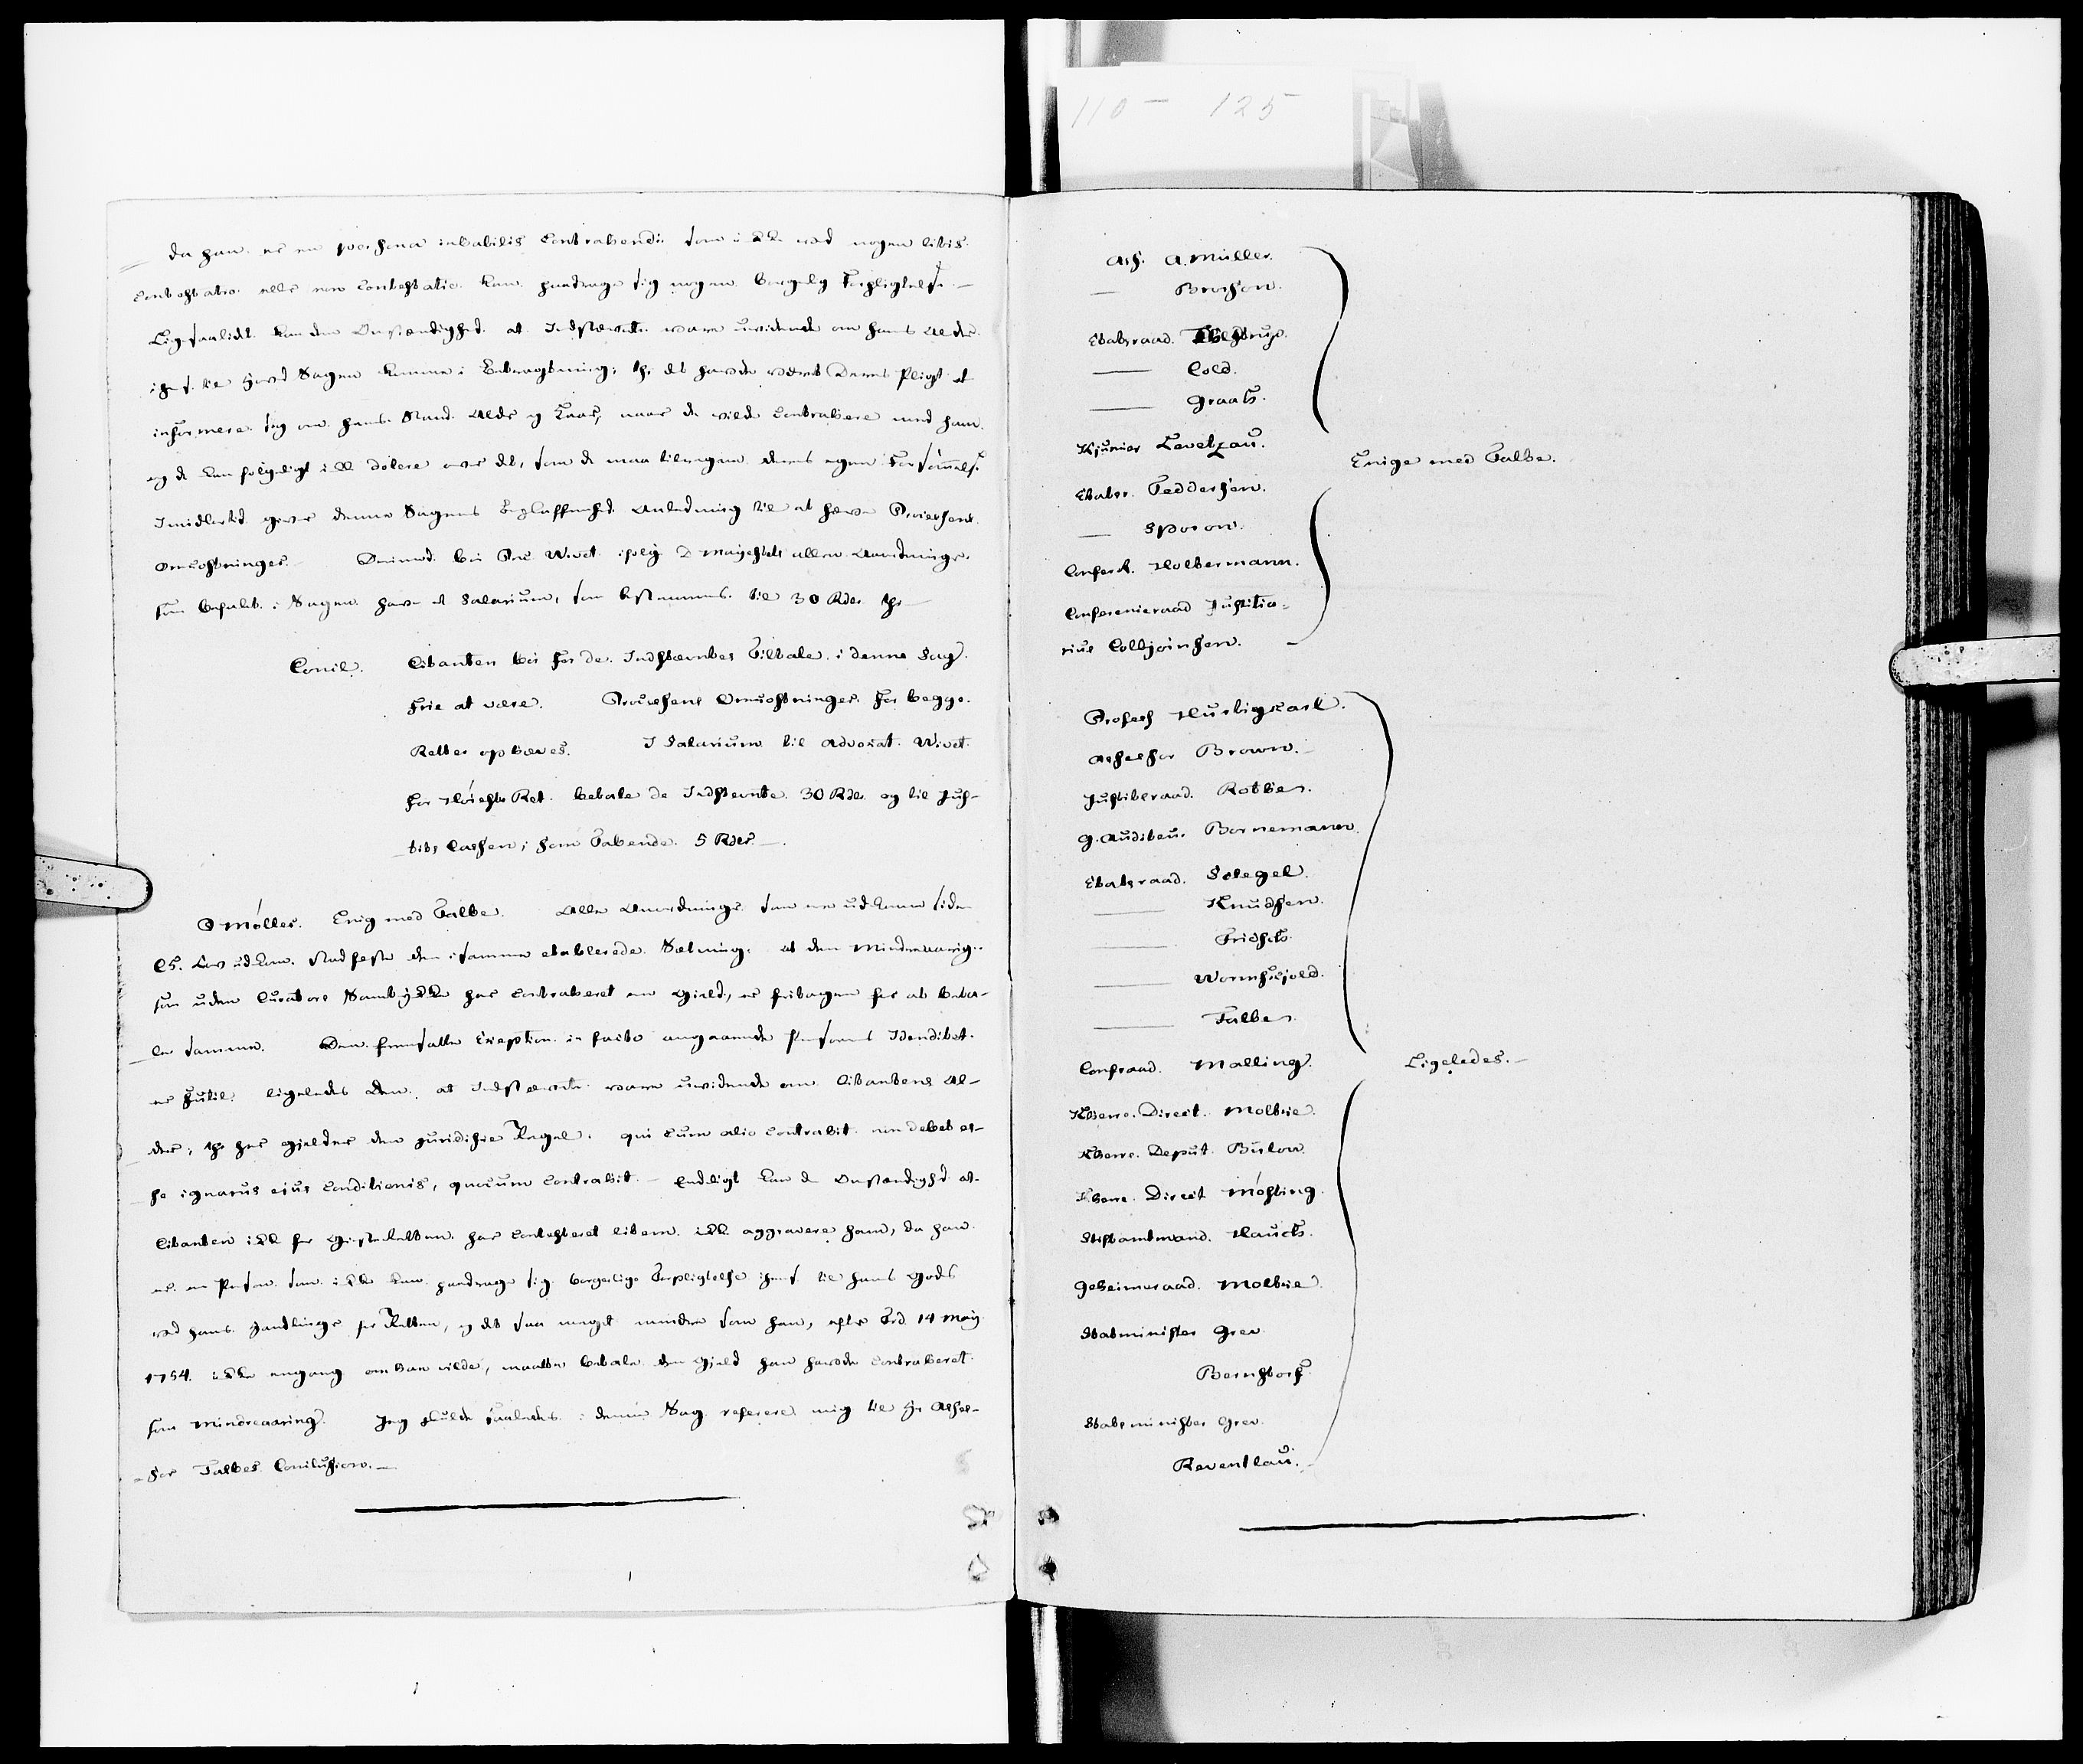 110 - 125
da han er en persona inhabilis contrahendi som ikke ved nogen litis
contestatio eller non contestatio kan paadrage sig nogen borgerlig Forpligtelse. —
Ligesaalidet kan den Omstændighed at Indstævnte vare uvidende om hans Alder
ihens. til hvad Sagen komme i Betragtning; thi det havde været Deres Pligt at
informere sig om hans Stand Alder og Kaar, naar de vilde contrahere med ham
og de kan følgeligt ikke dolere over det, som de maa tilregne deres egen Forsømmelse.
Imidlertid giver denne Sagens Beskaffenhed Anledning til at hæve Processens
Omkostninger. Derimod bør Proc Wivet ifølge D Majestæts allern. Anordninger
som befalet i Sagen have et Salarium, som bestemmes til 30 Rdlr thi
Concl. Citanten bør for de Indstævntes Tiltale i denne Sag
frie at være. Processens Omkostninger for begge
Retter ophæves. I Salarium til Advocat Wivet
for Høieste Ret betale de Indstævnte 30 Rdlr og til Jus-
tits Cassen, som Tabende 5 Rdlr. —
P Møller. Enig med Falbe. Alle Anordninger som ere udkomne siden
C5. Lov udkom stadfæste den i samme etablerede Sætning, at den Mindreaarig
som uden Curators Samtykke har contraheret en Gield, er fritagen for at beta-
le samme. Den fremsatte Exception in facto angaaende Personens Idenditet
er futil ligeledes den, at Indstævnte vare uvidende om Citantens Al-
der, thi her gjelder den juridiske Regel: qui cum alio contrahit non debet es-
se ignarus ejus conditionis, quocum contrahit. — Endeligt kan den Omstændighed at
Citanten ikke for Gjesteretten har contesteret litem ikke aggravere ham, da han
er en Person som ikke kan paadrage sig borgerlige Forpligtelse ihens. til hans Gods
ved hans Handlinger for Retten, og det saa meget mindre som han, efter Frd. 14 May
1754 ikke engang om han vilde, maatte betale den Gjeld han havde contraheret
som Mindreaaring. Jeg skulde saaledes i denne Sag referere mig til Hr Asses-
sor Falbes Conclusion. —
Ass. A. Müller.
— Brorson.
Etatsraad
— Cold.
— Graah.
Kjunker Levetzau.
Etatsr. Feddersen.
— Sporon.
Confer. Koltermann.
Conferenceraad Justitia-
rius Colbjørnsen. —
Enige med Falbe.
Profess Hurtigkarl.
Assessor Brown.
Justitsraad Rottbe
G. Auditeur Bornemann
Etatsraad Slegel.
— Knudsen.
— Fridsch
— Wormskjold.
— Falbe
Confraad Malling.
Ligeledes. —
Kherre. Direct. Moltke.
Kherre. Deput. Bülow.
Kherre. Direct Møsting.
Stiftamtmand. Hauch.
Geheimeraad Moltke.
Statsminister Grev
Bernstorf
Statsminister Grev
Reventlau. —